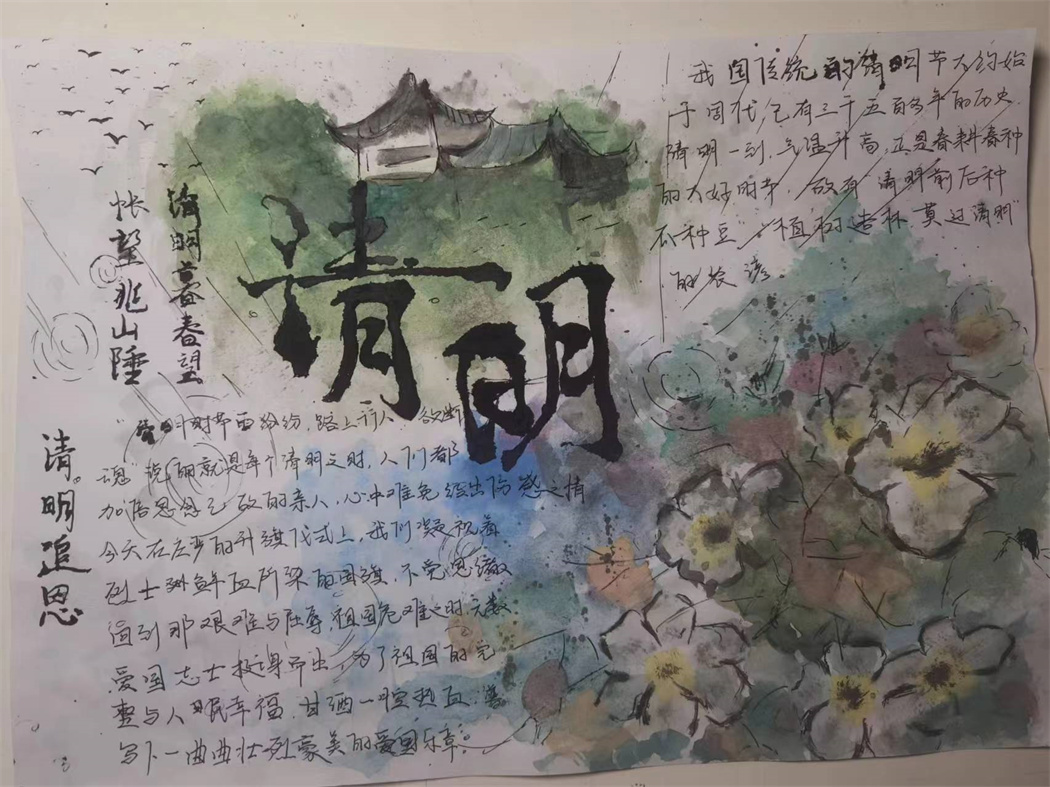 我国传统的清明节大约始
于周代,已有三千五百多年的历史
清明一到,气温升高,正是春耕春种
的大好时节,故有"清明前后种
瓜种豆","植树造林,莫过清明"
的农谚。
清明
清明暮春望
怅望北山陲
清明追思
"清明时节雨纷纷,路上行人欲断
魂"
就是每个清明之时,人们都
加倍思念已故的亲人,心中难免经出伤感之情
今天在庄严的升旗仪式上,我们凝视着
烈士 鲜血所染的国旗,不觉思绪
回到那艰难与屈辱,祖国危难之时,无数
爱国志士挺身而出,为了祖国的完
整与人民幸福,甘洒一腔热血,谱
写下一曲曲壮烈豪美的爱国乐章。